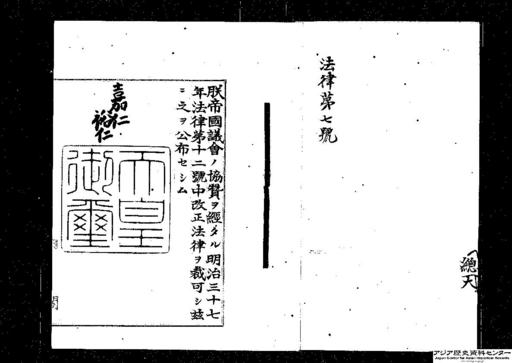 法律第七號
朕帝國議會ノ協賛ヲ經タル明治三十七
年法律第十二號中改正法律ヲ裁可シ茲
ニ之ヲ公布セシム
嘉仁
裕仁
天皇
御璽
アジア歴史資料センター
Japan Center for Asian Historical Records